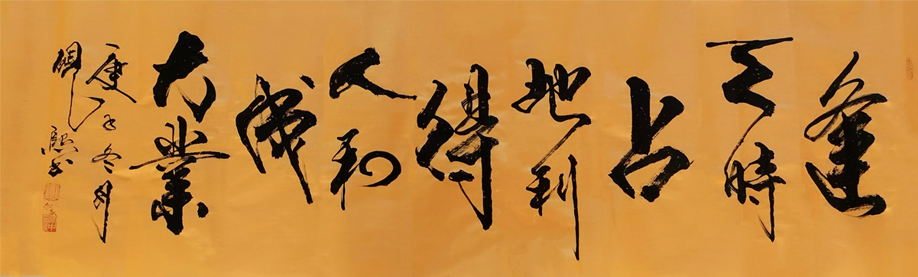 逢
天時
占
地利
得
人和
成
大業
庚子冬月